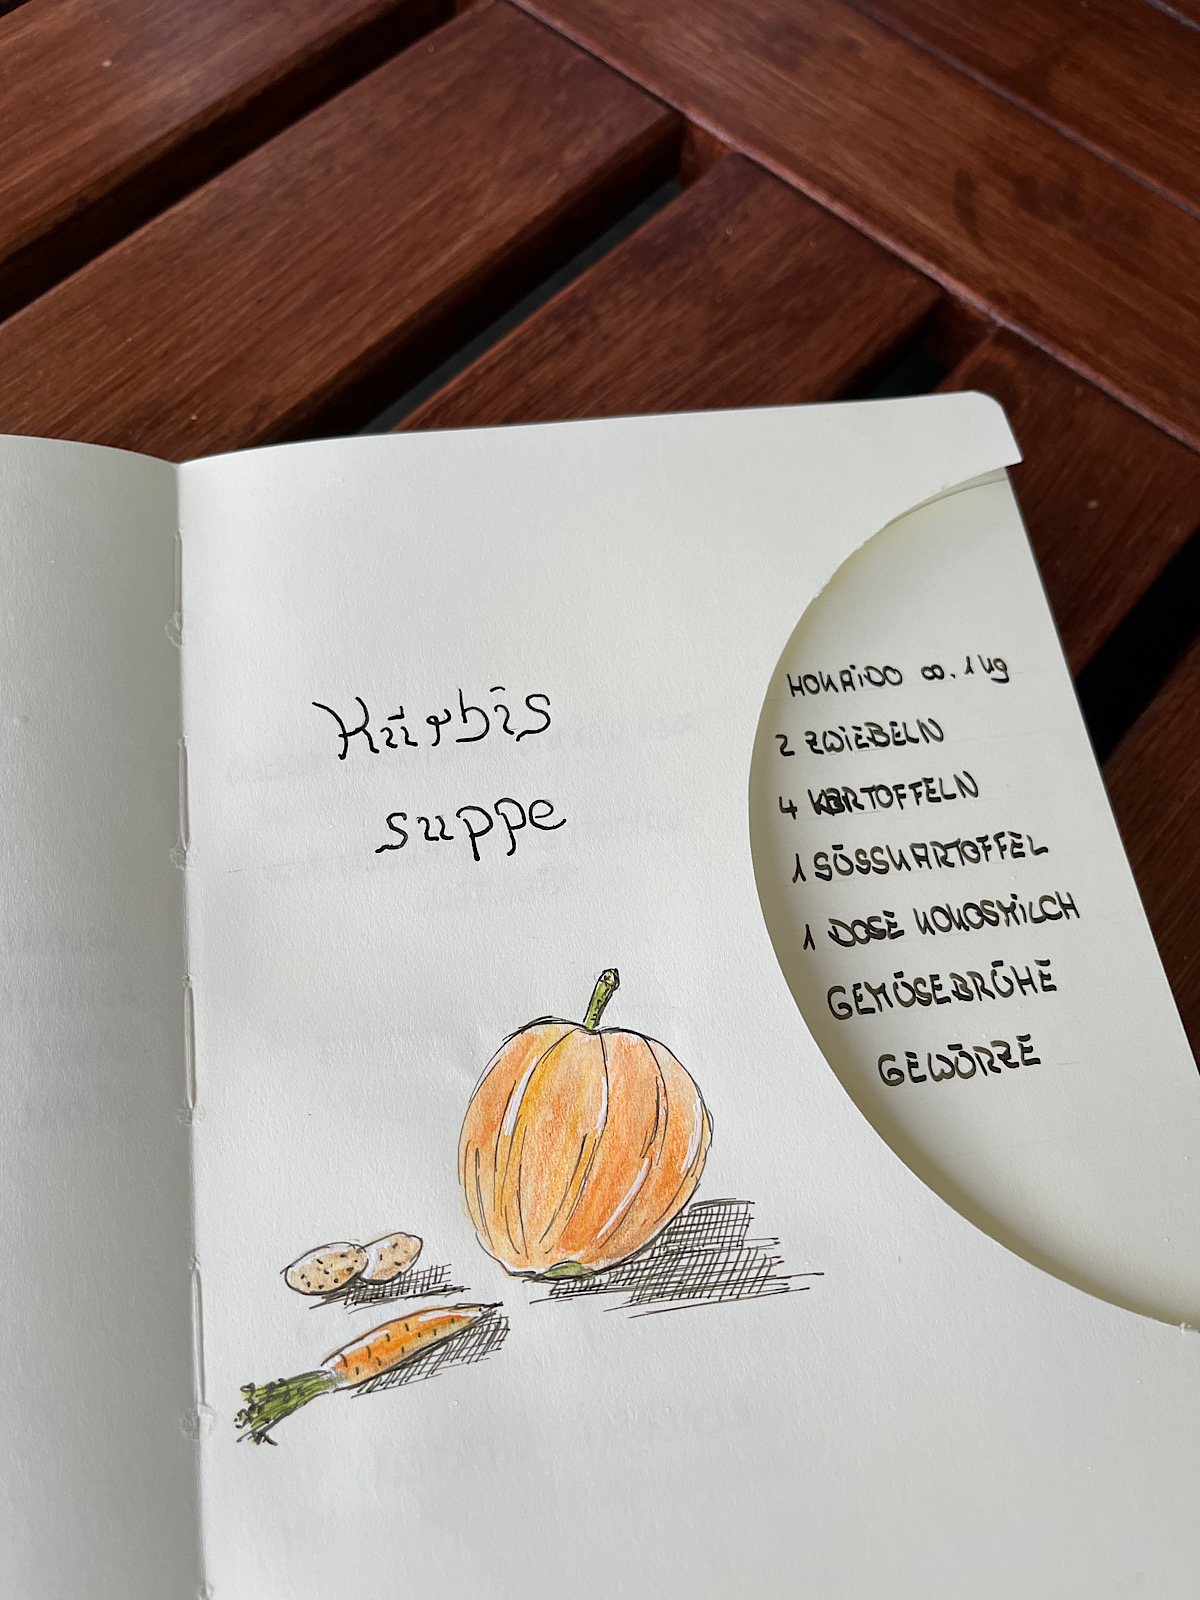 Kürbis
suppe
HOKAIDO ca. 1 kg
2 ZWIEBELN
4 KARTOFFELN
1 SÜSSKARTOFFEL
1 DOSE KOKOSMILCH
GEMÜSEBRÜHE
GEWÜRZE